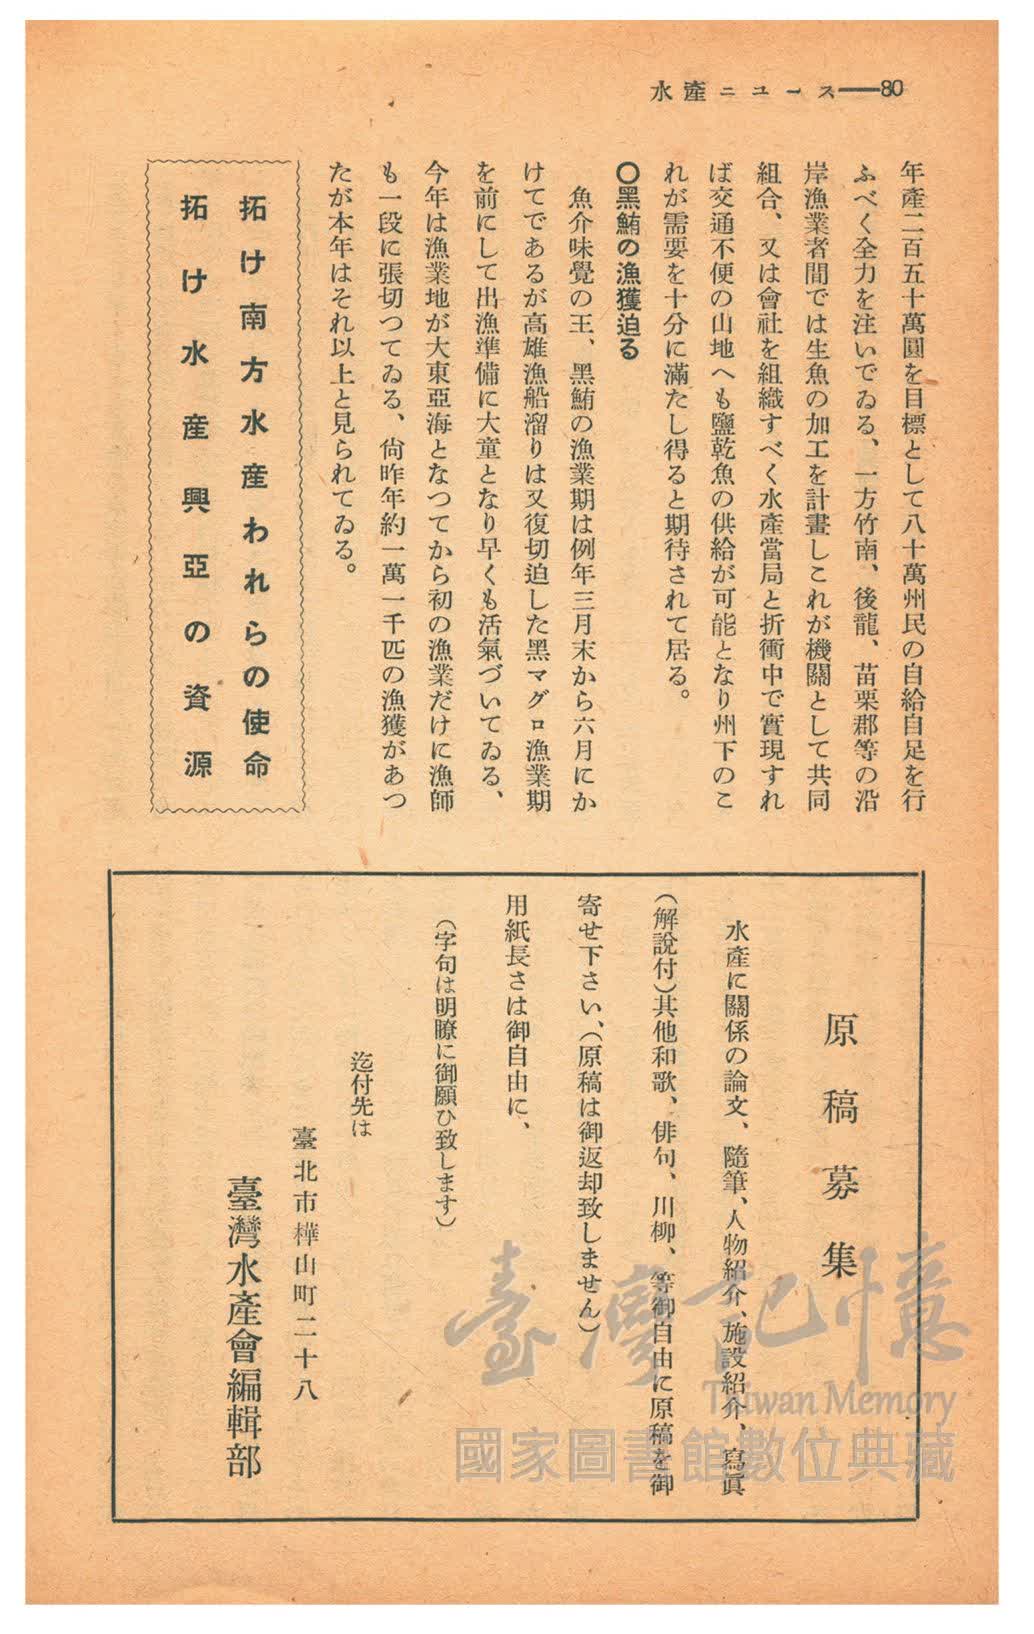 水產ニユース━━80
年產二百五十萬圓を目標として八十萬州民の自給自足を行
ふべく全力を注いでゐる、一方竹南、後龍、苗栗郡等の沿
岸漁業者間では生魚の加工を計畫しこれが機關として共同
組合、又は會社を組織すべく水產當局と折衝中で實現すれ
ば交通不便の山地へも鹽乾魚の供給が可能となり州下のこ
れが需要を十分に滿たし得ると期待されて居る。
〇黑鮪の漁獲迫る
魚介味覺の王、黑鮪の漁業期は例年三月末から六月にか
けてであるが高雄漁船溜りは又復切迫した黑マグロ漁業期
を前にして出漁準備に大童となり早くも活氣づいてゐる、
今年は漁業地が大東亞海となつてから初の漁業だけに漁師
も一段に張切つてゐる、尙昨年約一萬一千匹の漁獲があつ
たが本年はそれ以上と見られてゐる。
拓け南方水産われらの使命
拓け水産興亞の資源
原稿募集
水產に關係の論文、隨筆、人物紹介、施設紹介、寫眞
(解說付)其他和歌、俳句、川柳、等御自由に原稿を御
寄せ下さい、(原稿は御返却致しません)
用紙長さは御自由に、
(字句は明瞭に御願ひ致します)
迄付先は
臺北市樺山町二十八
臺灣水產會編輯部
臺灣記憶
Taiwan Memory
國家圖書館數位典藏